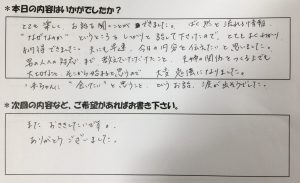 ＊本日の内容はいかがでしたか？
とても楽しくお話を聞くことができました。ばく然と流れる情報
"なぜなのか"というところをしっかりと話して下さったので、とてもよくわかり
納得できました。夫にも早速、今日の内容を伝えたいと思いました。
男の人の対応まで教えていただけたこと、夫婦の関係をつくる上でも
大切なこと、そこから始まると思うので大変勉強になりました。
赤ちゃんに"会いたい"と思うこと、というお話、涙が出そうでした。
＊次回の内容など、ご希望があればお書き下さい。
また おききしたいです。
ありがとうございました。